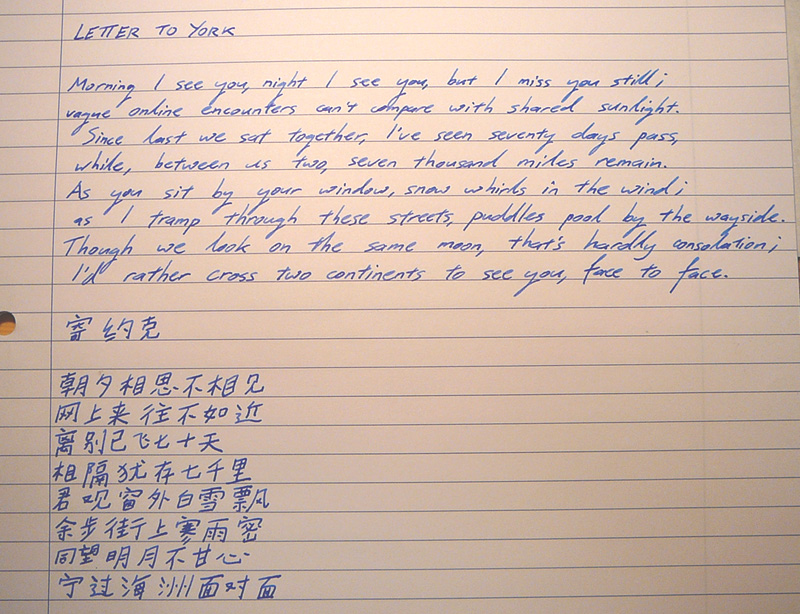 LETTER TO YORK
Morning I see you, night I see you, but I miss you still;
vague online encounters can't compare with shared sunlight.
Since last we sat together, I've seen seventy days pass,
while, between us two, seven thousand miles remain.
As you sit by your window, snow whirls in the wind;
as I tramp through these streets, puddles pool by the wayside.
Though we look on the same moon, that's hardly consolation;
I'd rather cross two continents to see you, face to face.
寄约克
朝夕相思不相见
网上来往不如近
离别已飞七十天
相隔犹存七千里
君观窗外白雪飘风
余步街上寒雨密
同望明月不甘心
宁过海洲面对面